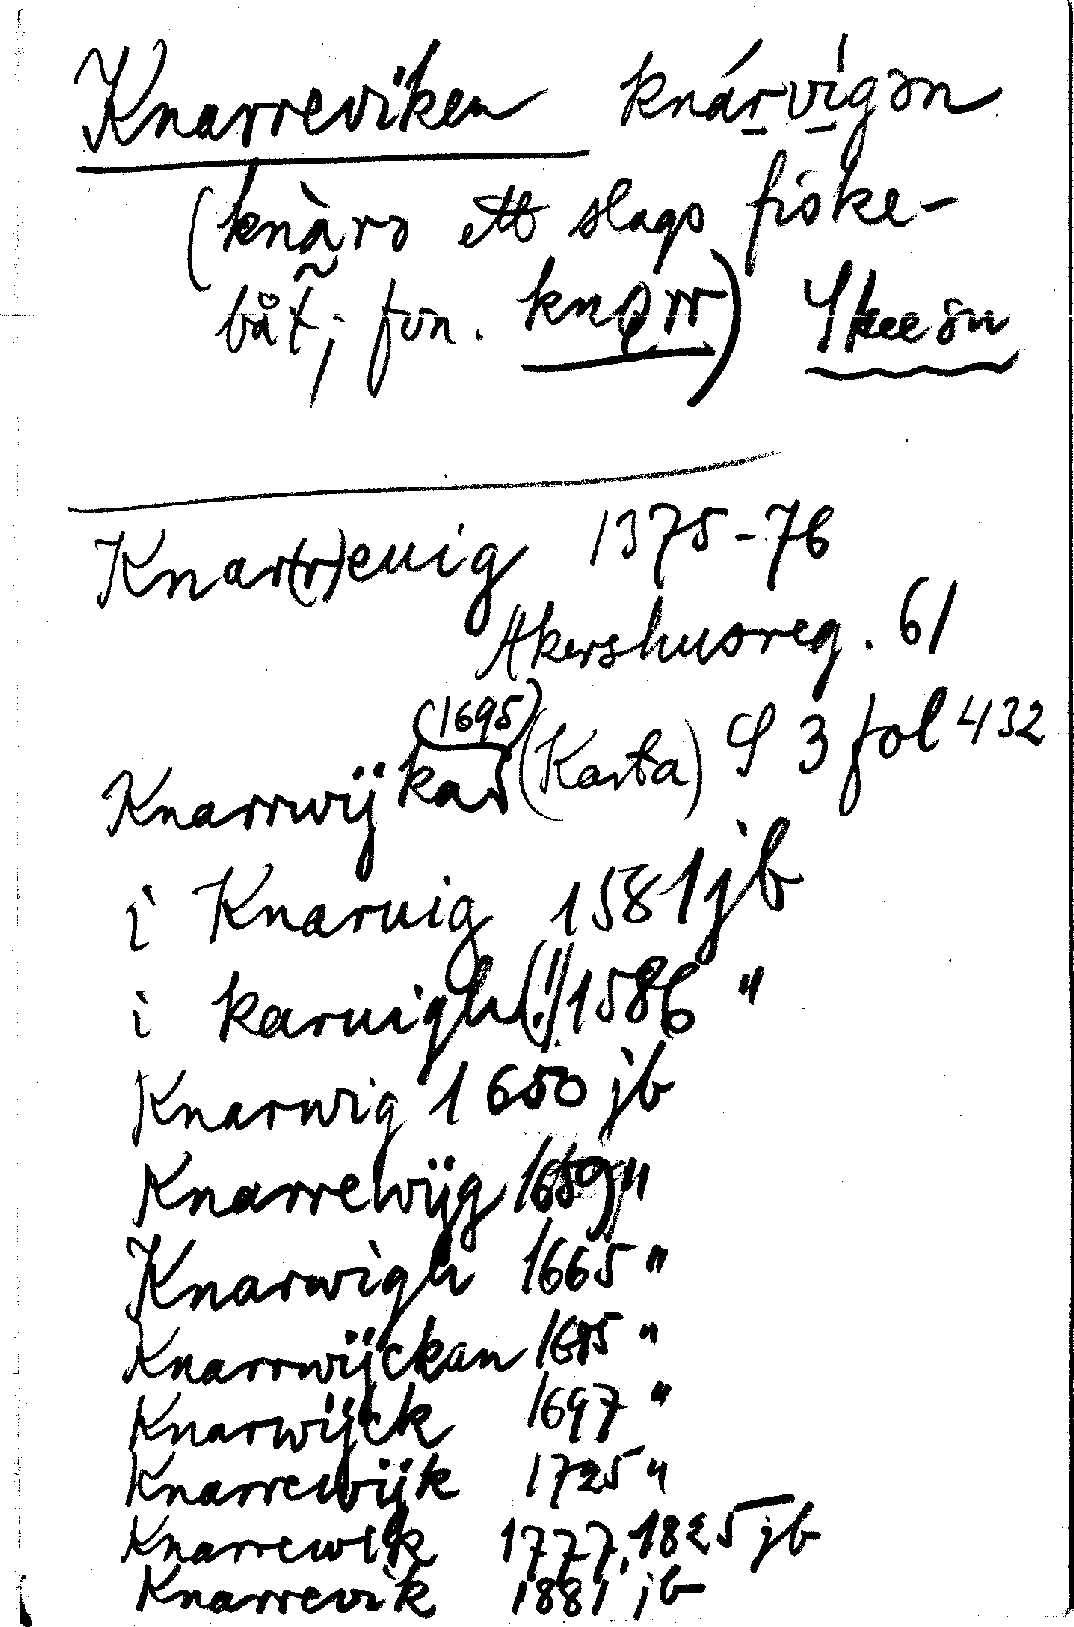 Knarreviken knárvígən
(knàrə ett slags fiske-
båt; fvn. knǫrr) Skee sn
Knar(r)euig 1375-76
Akershusreg. 61
(1695)
Knarrwijkan (Karta) S 3 fol 432
i Knaruig 1581 jb
i karuigh(!) 1586 "
Knarwig 1650 jb
Knarrewijg 1659 "
Knarwigh 1665 "
Knarrwijckan 1685 "
Knarwijck 1697 "
Knarrewijk 1725 "
Knarrewik 1777, 1825 jb
Knarrevik 1881 jb